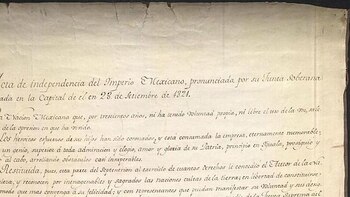 cta de independencia del Imperio Mexicano, pronunciada por su Junta Soberana
ada en la Capital de él en 28 de Setiembre de 1821.
Nacion Mexicana que, por trescientos años, ni ha tenido voluntad propia, ni libre el uso de la voz, sale
de la opresion en que ha vivido.
Los heroicos esfuerzos de sus hijos han sido coronados, y está consumada la empresa, eternamente memorable,
un genio, superior á toda admiracion y elogio, amor y gloria de su Patria, principió en Iguala, prosiguió y
al cabo, arrollando obstaculos casi insuperables.
Restituida, pues, esta parte del Septentrion al exercicio de cuantos derechos le concedió el Autor de la na
eza, y reconocen por inenagenables y sagrados las naciones cultas de la tierra; en libertad de constituirse
modo que mas convenga á su felicidad; y con representantes que puedan manifestar su voluntad y sus